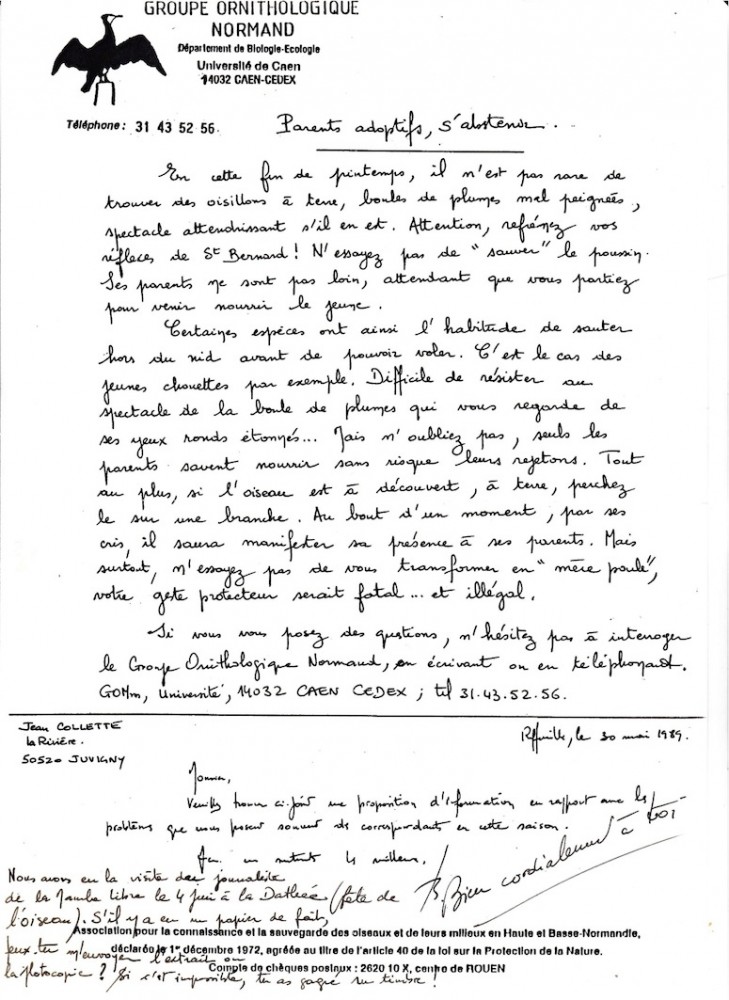 GROUPE ORNITHOLOGIQUE
NORMAND
Département de Biologie-Ecologie
Université de Caen
14032 CAEN-CEDEX
Téléphone: 31 43 52 56.
Parents adoptifs, s'abstenir.
En cette fin de printemps, il n'est pas rare de
trouver des oisillons à terre, boules de plumes mal peignées,
spectacle attendrissant s'il en est. Attention, refrénez vos
réflexes de St Bernard ! N'essayez pas de "sauver" le poussin.
Ses parents ne sont pas loin, attendant que vous partiez
pour venir nourrir le jeune.
Certaines espèces ont ainsi l'habitude de sauter
hors du nid avant de pouvoir voler. C'est le cas des
jeunes chouettes par exemple. Difficile de résister au
spectacle de la boule de plumes qui vous regarde de
ses yeux ronds étonnés... Mais n'oubliez pas, seuls les
parents savent nourrir sans risque leurs rejetons. Tout
au plus, si l'oiseau est à découvert, à terre, perchez
le sur une branche. Au bout d'un moment, par ses
cris, il saura manifester sa présence à ses parents. Mais
surtout, n'essayez pas de vous transformer en "mère poule",
votre geste protecteur serait fatal... et illégal.
Si vous vous posez des questions, n'hésitez pas à interroger
le Groupe Ornithologique Normand, en écrivant ou en téléphonant.
GONm, Université, 14032 CAEN CEDEX ; tél 31.43.52.56.
Jean COLLETTE
la Rivière.
50520 JUVIGNY
le 30 mai 1989.
Monsieur,
Veuillez trouver ci-joint une proposition d'information en rapport avec les
problèmes que nous posent souvent des correspondants en cette saison.
Bien cordialement à toi
Nous avons eu la visite des journalistes
de la Manche Libre le 4 juin à la Dathée (fête de
l'oiseau). S'il y a eu un papier de fait,
peux-tu m'envoyer l'extrait ou
la photocopie ? Si c'est impossible, tu as gagné un timbre !
Association pour la connaissance et la sauvegarde des oiseaux et de leurs milieux en Haute et Basse-Normandie,
déclarée le 1er décembre 1972, agréée au titre de l'article 40 de la loi sur la Protection de la Nature.
Compte de chèques postaux : 2620 10 X, centre de ROUEN